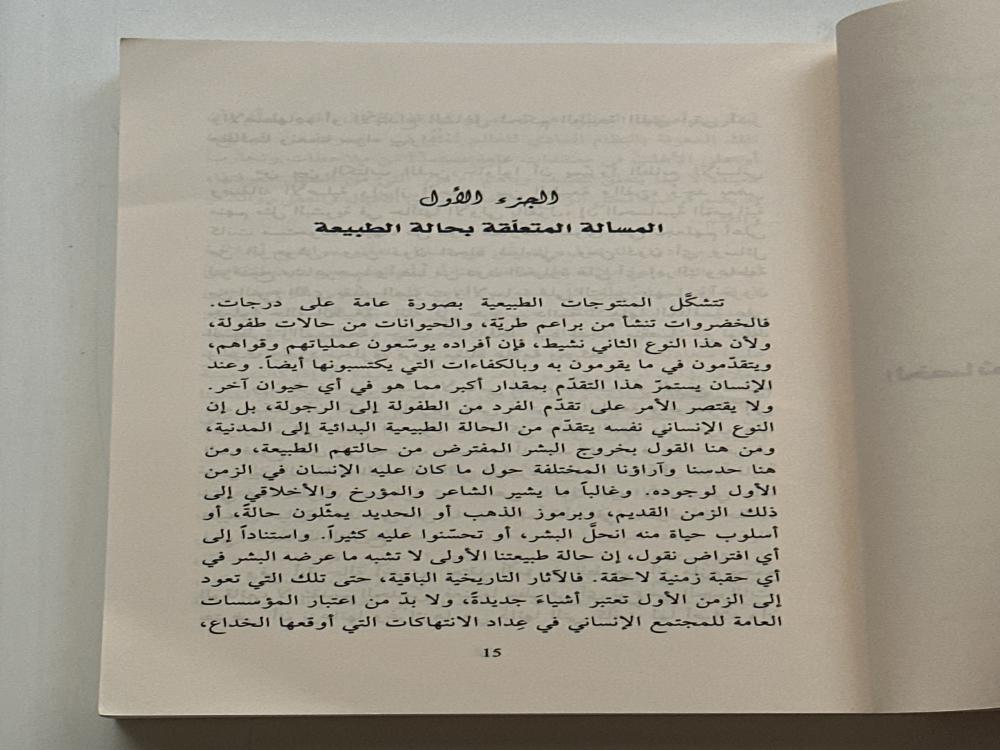 الجزء الأول
المسالة المتعلّقة بحالة الطبيعة
تتشكَّل المنتوجات الطبيعية بصورة عامة على درجات.
فالخضروات تنشأ من براعم طريّة، والحيوانات من حالات طفولة،
ولأن هذا النوع الثاني نشيط، فإن أفراده يوسّعون عملياتهم وقواهم،
ويتقدّمون في ما يقومون به وبالكفاءات التي يكتسبونها أيضاً. وعند
الإنسان يستمرّ هذا التقدّم بمقدار أكبر مما هو في أي حيوان آخر.
ولا يقتصر الأمر على تقدّم الفرد من الطفولة إلى الرجولة، بل إن
النوع الإنساني نفسه يتقدّم من الحالة الطبيعية البدائية إلى المدنية،
ومن هنا القول بخروج البشر المفترض من حالتهم الطبيعة، ومن
هنا حدسنا وآراؤنا المختلفة حول ما كان عليه الإنسان في الزمن
الأول لوجوده. وغالباً ما يشير الشاعر والمؤرخ والأخلاقي إلى
ذلك الزمن القديم، وبرموز الذهب أو الحديد يمثّلون حالةً، أو
أسلوب حياة منه انحلَّ البشر، أو تحسّنوا عليه كثيراً. واستناداً إلى
أي افتراض نقول، إن حالة طبيعتنا الأولى لا تشبه ما عرضه البشر في
أي حقبة زمنية لاحقة. فالآثار التاريخية الباقية، حتى تلك التي تعود
إلى الزمن الأول تعتبر أشياءَ جديدةً، ولا بدّ من اعتبار المؤسسات
العامة للمجتمع الإنساني في عِداد الانتهاكات التي أوقعها الخداع،
15